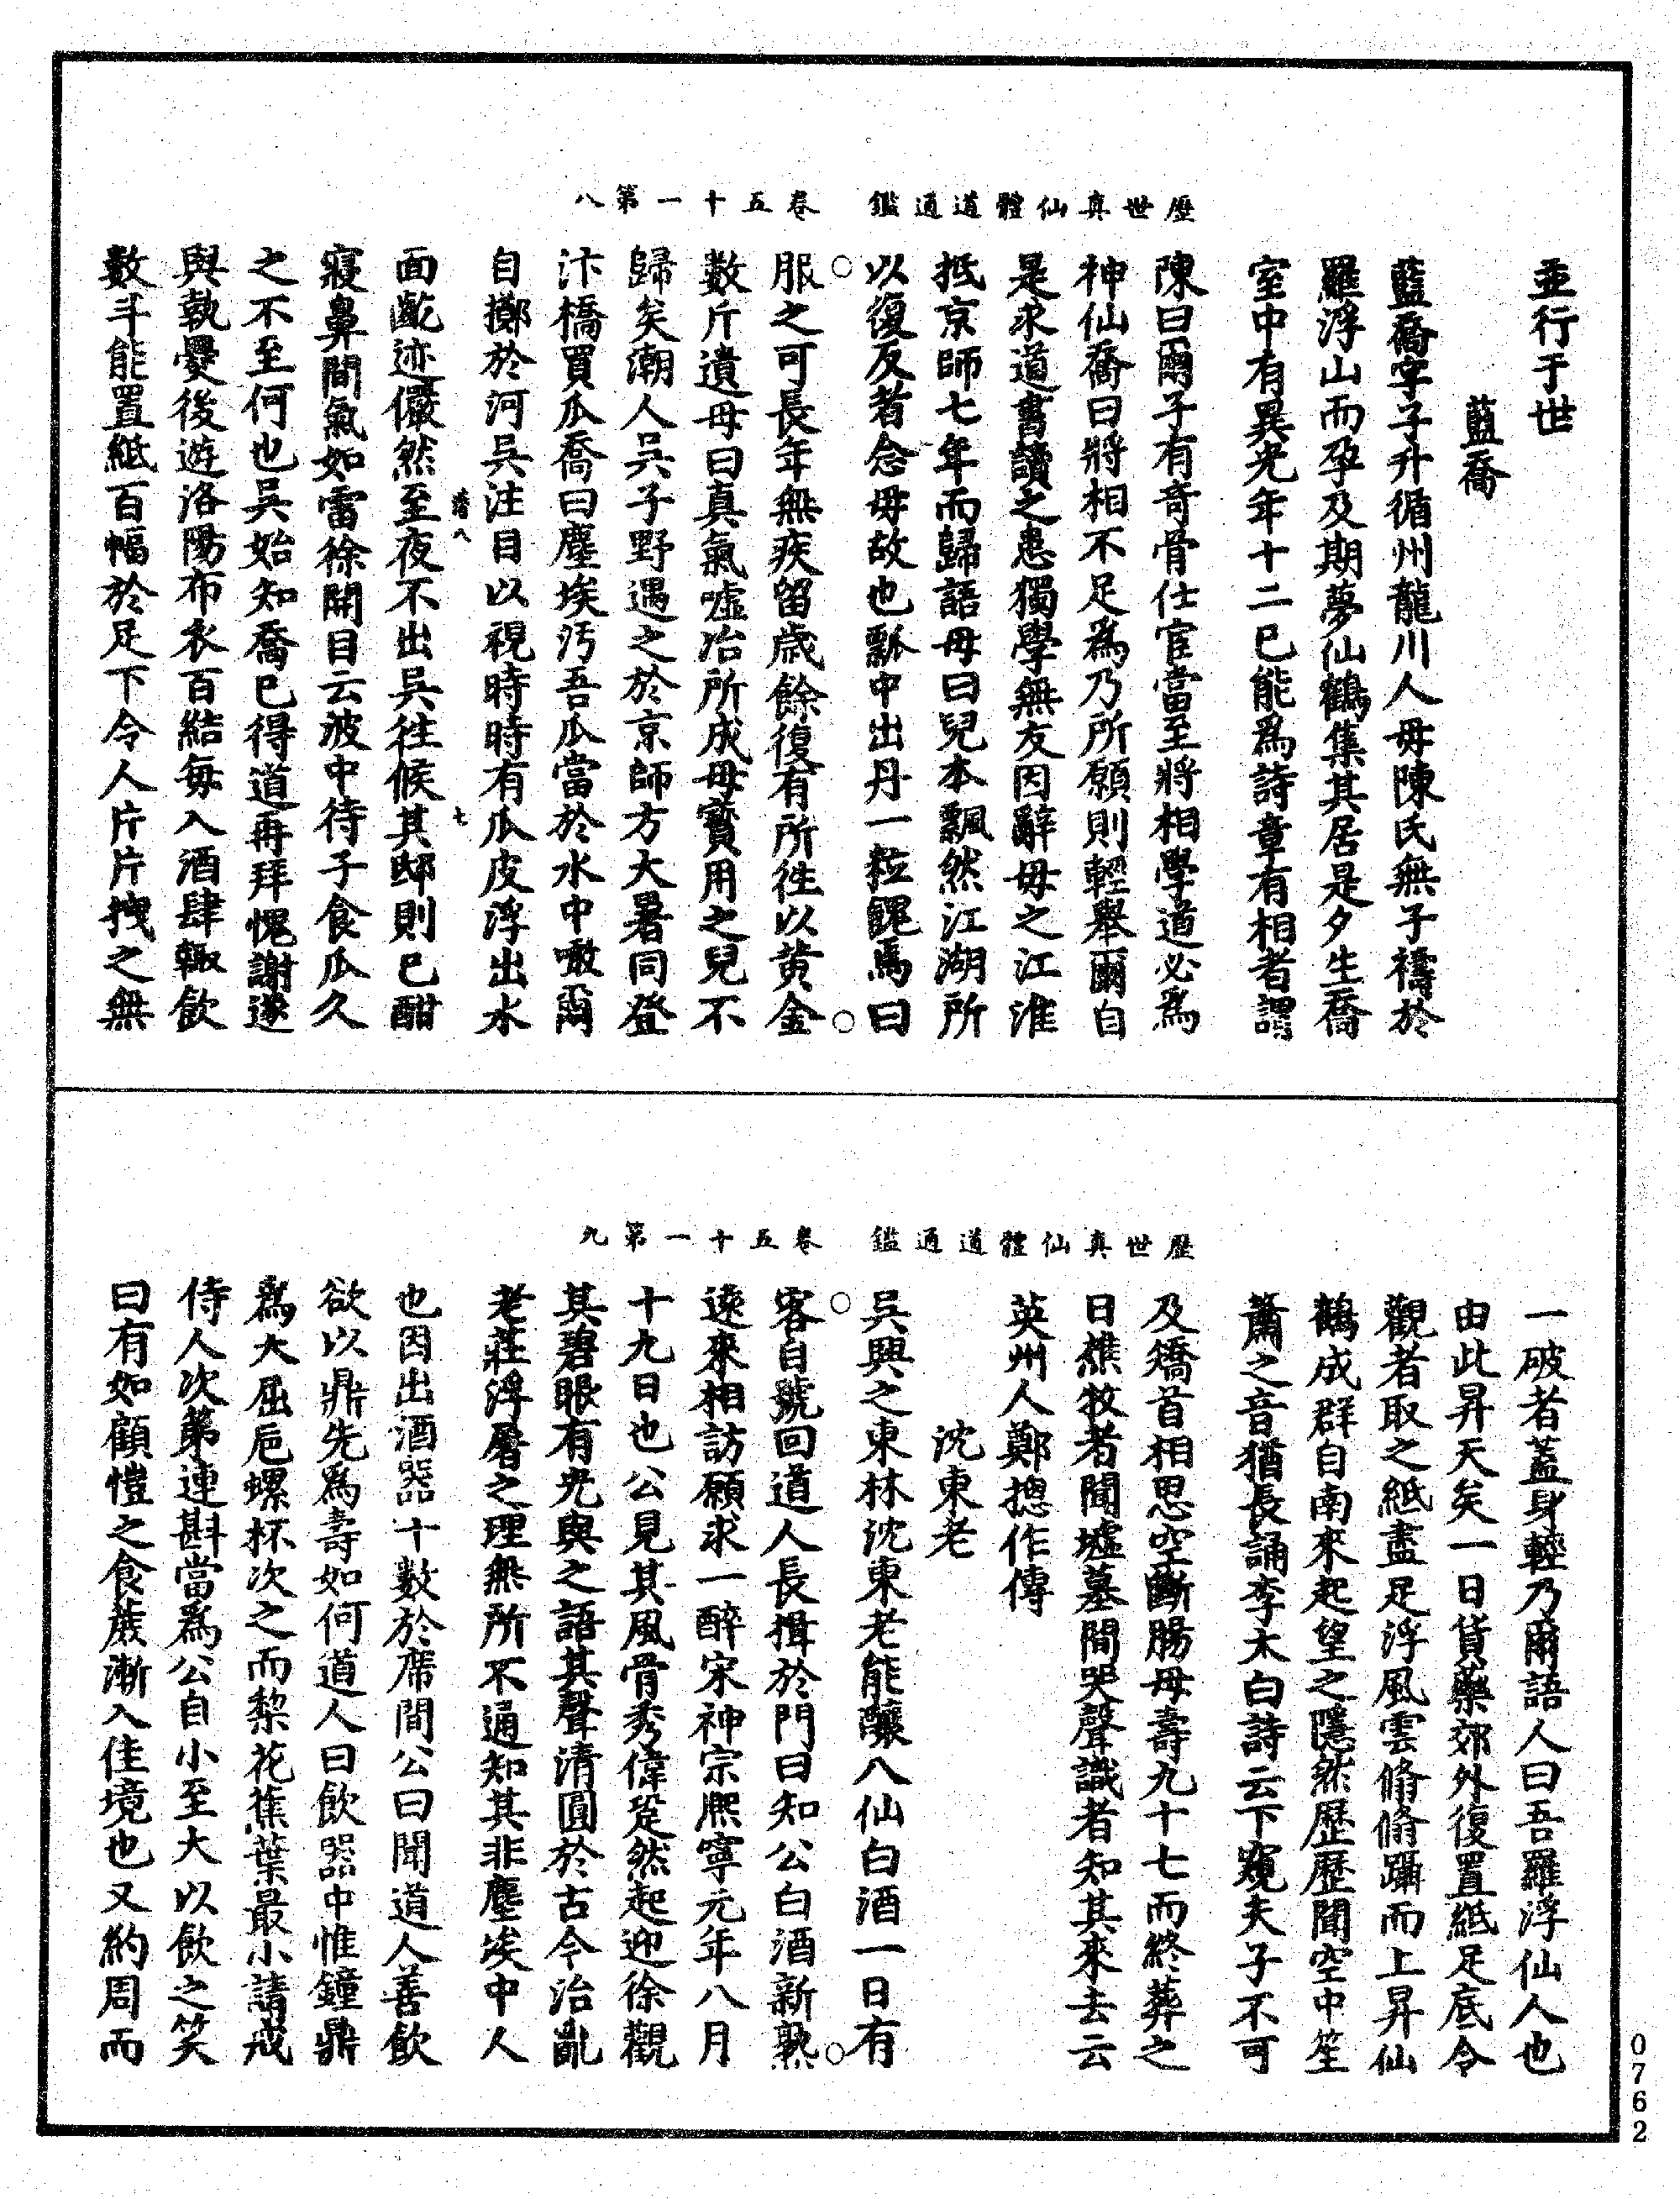 歷世真仙體道通鑑　卷五十一第八
並行于世
藍喬
藍喬字子升循州龍川人母陳氏無子禱於
羅浮山而孕及期夢仙鶴集其居是夕生喬
室中有異光年十二已能爲詩章有相者謂
陳曰爾子有奇骨仕宦當至將相學道必爲
神仙喬曰將相不足爲乃所願則輕舉爾自
是求道書讀之患獨學無友因辭母之江淮
抵京師七年而歸語母曰兒本飄然江湖所
以復反者念母故也瓢中出丹一粒餽焉曰
○服之可長年無疾留歲餘復有所往以黃金○
數斤遺母曰真氣噓冶所成母寶用之兒不
歸矣潮人吳子野遇之於京師方大暑同登
汴橋買瓜喬曰塵埃汚吾瓜當於水中噉爾
自擲於河吳注目以視時時有瓜皮浮出水
八　七
面齕迹儼然至夜不出吳往候其邸則已酣
寢鼻間氣如雷徐開目云波中待子食瓜久
之不至何也吳始知喬已得道再拜愧謝遂
與執爨後遊洛陽布衣百結每入酒肆輒飲
數斗能置紙百幅於足下令人片片拽之無
歷世真仙體道通鑑　卷五十一第九
一破者蓋身輕乃爾語人曰吾羅浮仙人也
由此昇天矣一日貨藥郊外復置紙足底令
觀者取之紙盡足浮風雲翛翛躡而上昇仙
鶴成群自南來起望之隱然歷歷聞空中笙
簫之音猶長誦李太白詩云下窺夫子不可
及矯首相思空斷腸母壽九十七而終葬之
日樵牧者聞墟墓間哭聲識者知其來去云
英州人鄭摠作傳
沈東老
吳興之東林沈東老能釀八仙白酒一日有
○客自號回道人長揖於門曰知公白酒新熟○
遠來相訪願求一醉宋神宗熈寧元年八月
十九日也公見其風骨秀偉跫然起迎徐觀
其碧眼有光與之語其聲清圓於古今治亂
老莊浮屠之理無所不通知其非塵埃中人
也因出酒器十數於席間公曰聞道人善飲
欲以鼎先爲壽如何道人曰飲器中惟鐘鼎
爲大屈巵螺杯次之而梨花蕉葉最小請戒
侍人次第連斟當爲公自小至大以飲之笑
曰有如顧愷之食蔗漸入佳境也又約周而
0762